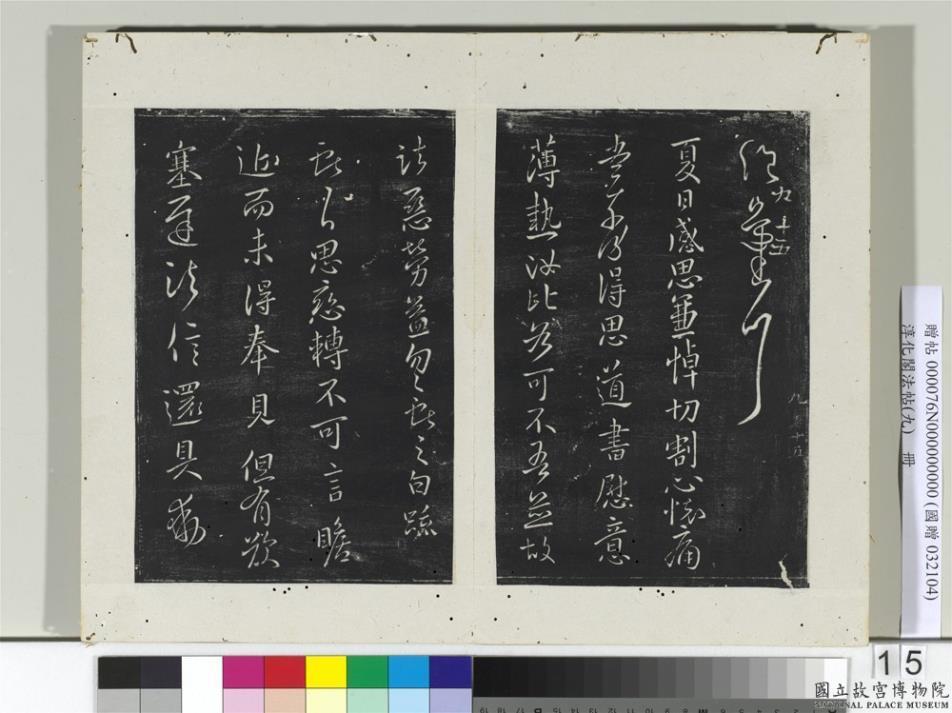 九 十五
夏日感思兼悼切割心懷痛
當奈何得思道書慰意
薄熱汝比各可不吾並故
諸惡勞益勿勿獻之白疏
思戀轉不可言瞻
近而未得奉見但有歎
塞遲諸信還具動
九 十五
贈帖 000076N000000000 (國贈 032104)
淳化閣法帖(九) 冊
15
國立故宮博物院
NATIONAL PALACE MUSEUM